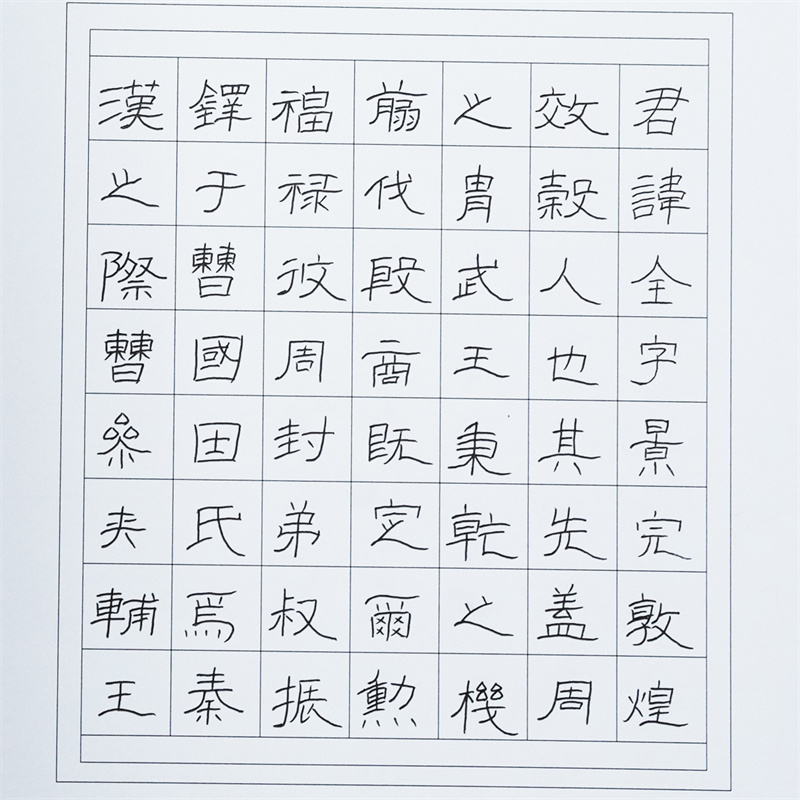 君諱全字景完敦煌
效穀人也其先盖周
之胄武王秉乾之機
翦伐殷商既定爾勲
福禄攸周封弟叔振
鐸于曹國因氏焉秦
漢之際曹參夾輔王